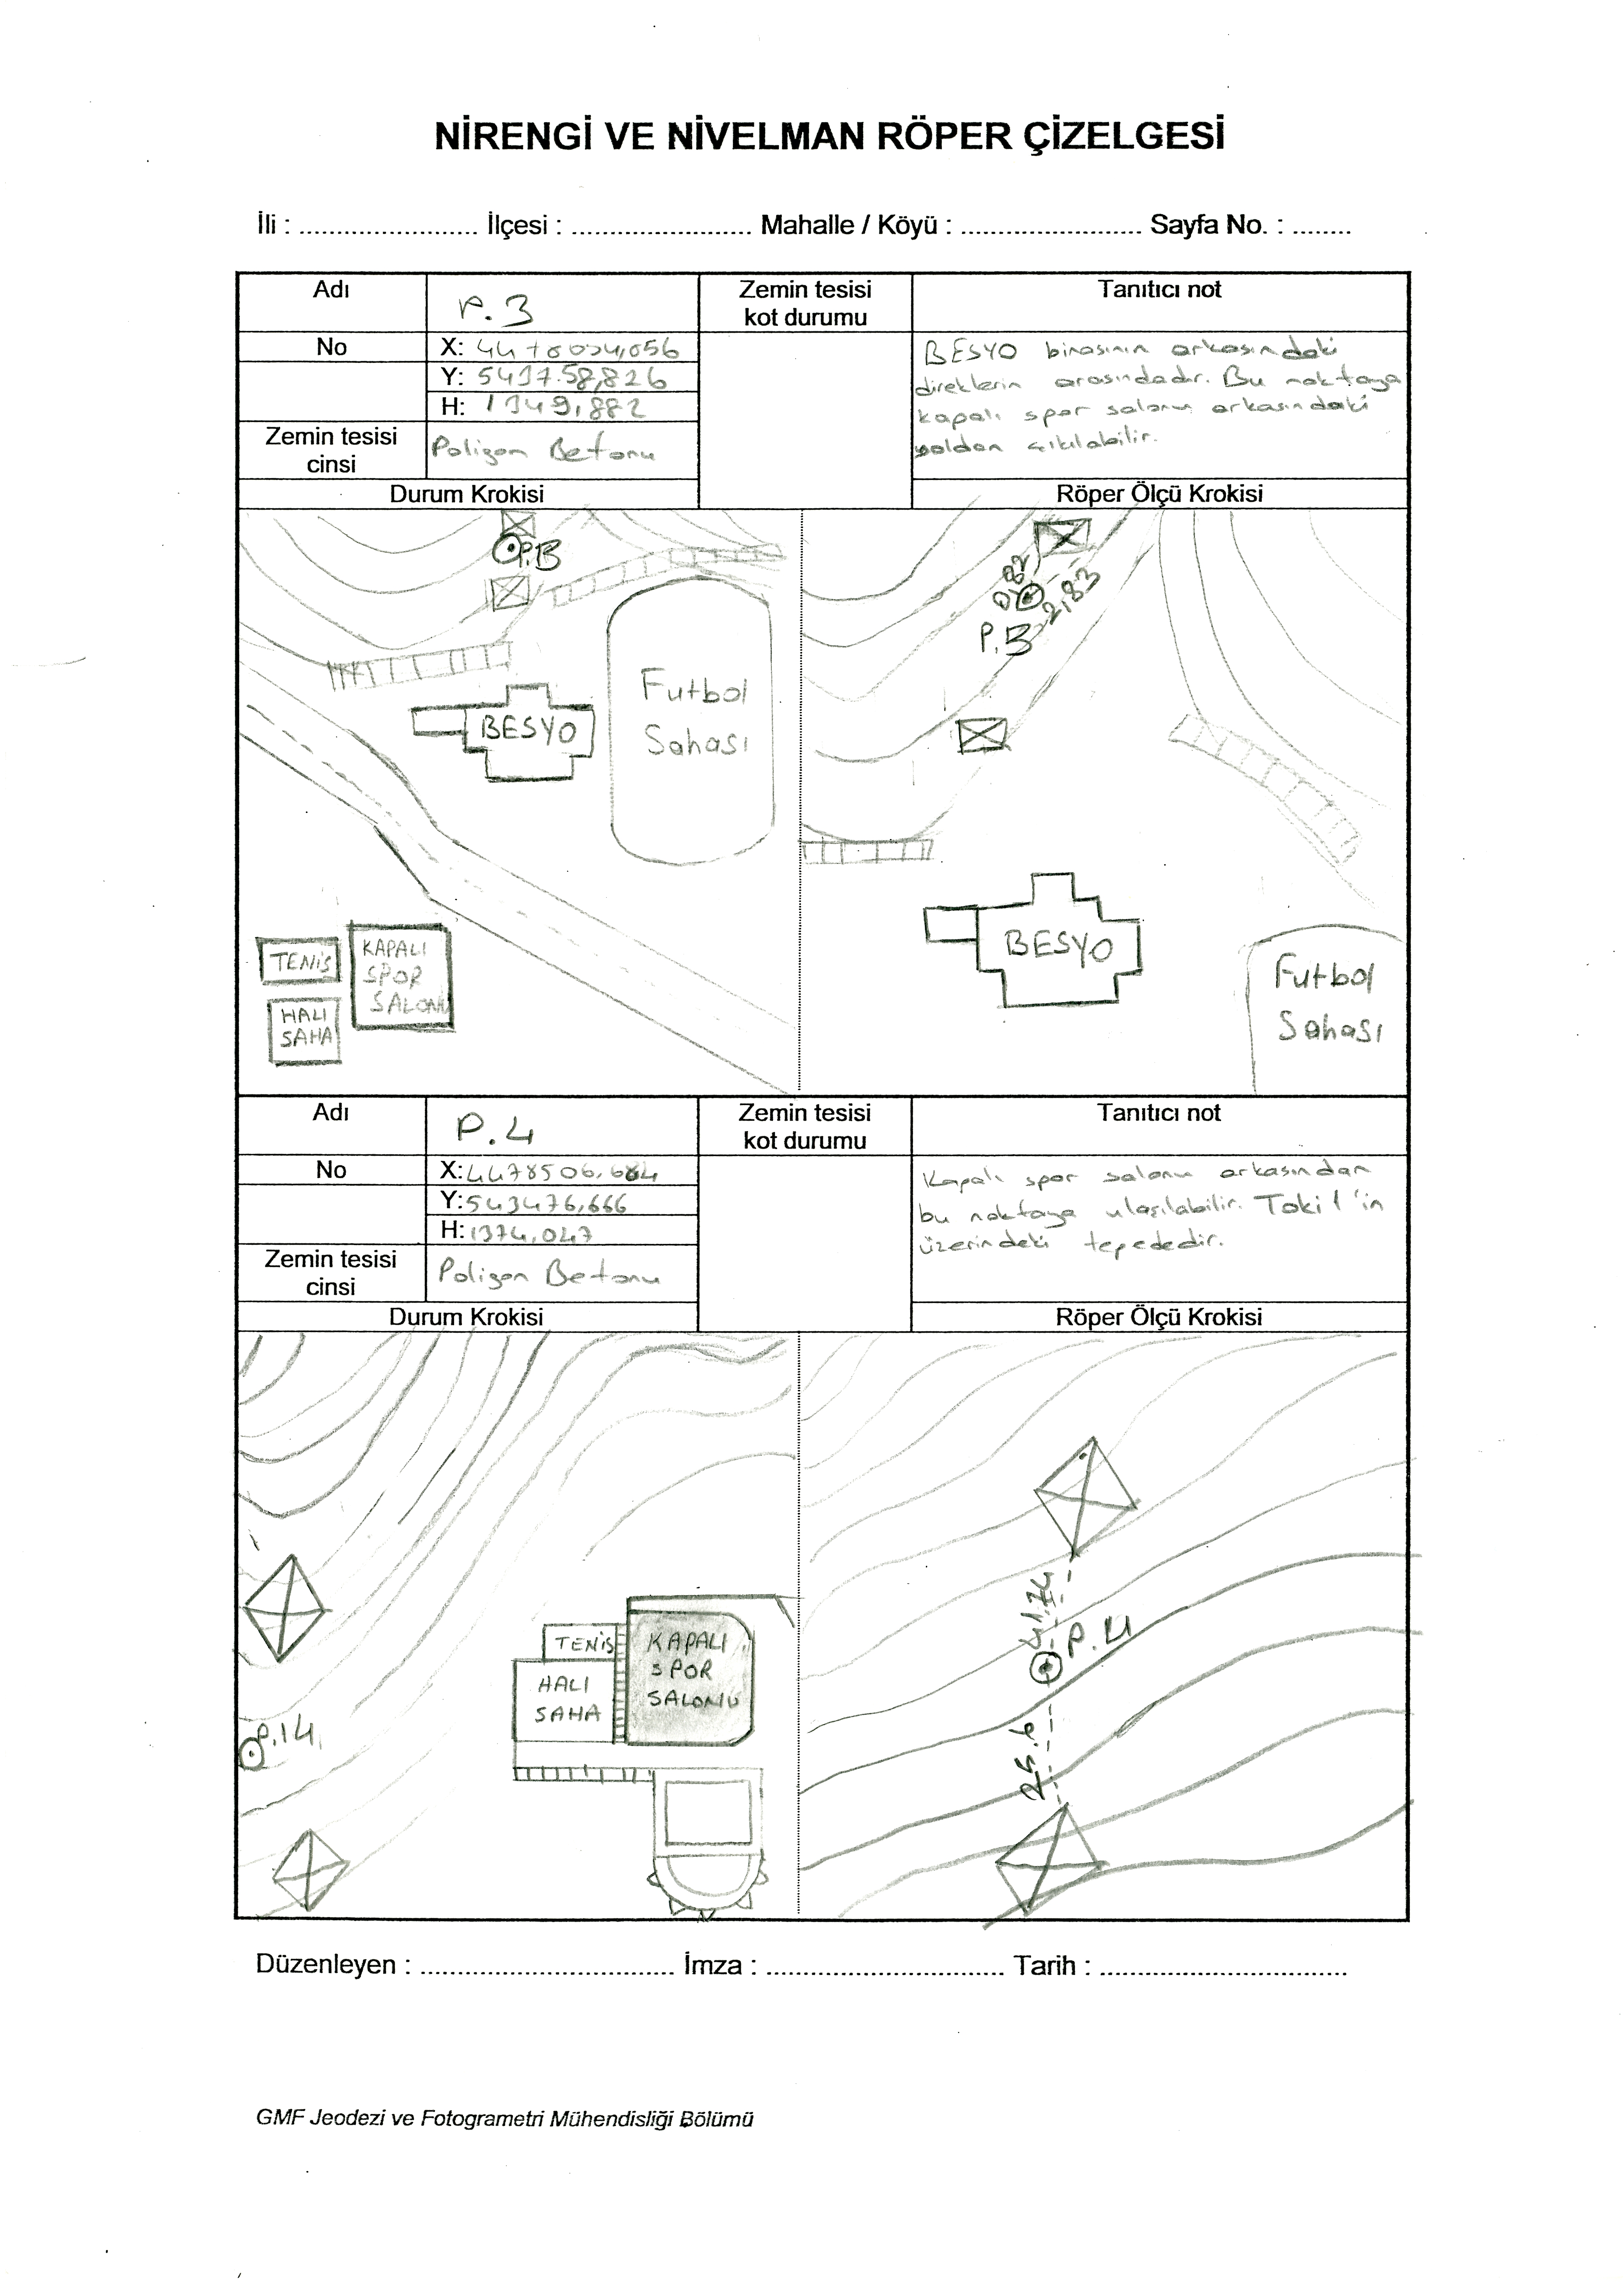 NİRENGİ VE NİVELMAN RÖPER ÇİZELGESİ
İli : ........................ İlçesi : ........................ Mahalle / Köyü : ........................ Sayfa No. : ........
Adı P.3 Zemin tesisi kot durumu Tanıtıcı not
No
X:
Y: 543758,826
H: 1349,882
Zemin tesisi cinsi Poligon Betonu
BESYO binasının arkasındaki
direklerin arasındadır. Bu noktaya
kapalı spor salonu arkasındaki
yoldan çıkılabilir.
Durum Krokisi Röper Ölçü Krokisi
P.3
BESYO
Futbol
Sahası
TENİS
KAPALI
SPOR
SALONU
HALI
SAHA
0,82
2,83
P.3
BESYO
Futbol
Sahası
Adı P.4 Zemin tesisi kot durumu Tanıtıcı not
No
X: 4478506,684
Y: 543476,666
H: 1374,047
Zemin tesisi cinsi Poligon Betonu
Kapalı spor salonu arkasından
bu noktaya ulaşılabilir. Toki 1'in
üzerindeki tepededir.
Durum Krokisi Röper Ölçü Krokisi
P.14
TENİS
HALI
SAHA
KAPALI
SPOR
SALONU
41.74
P.4
25.6
Düzenleyen : .................................. İmza : ................................ Tarih : .................................
GMF Jeodezi ve Fotogrametri Mühendisliği Bölümü